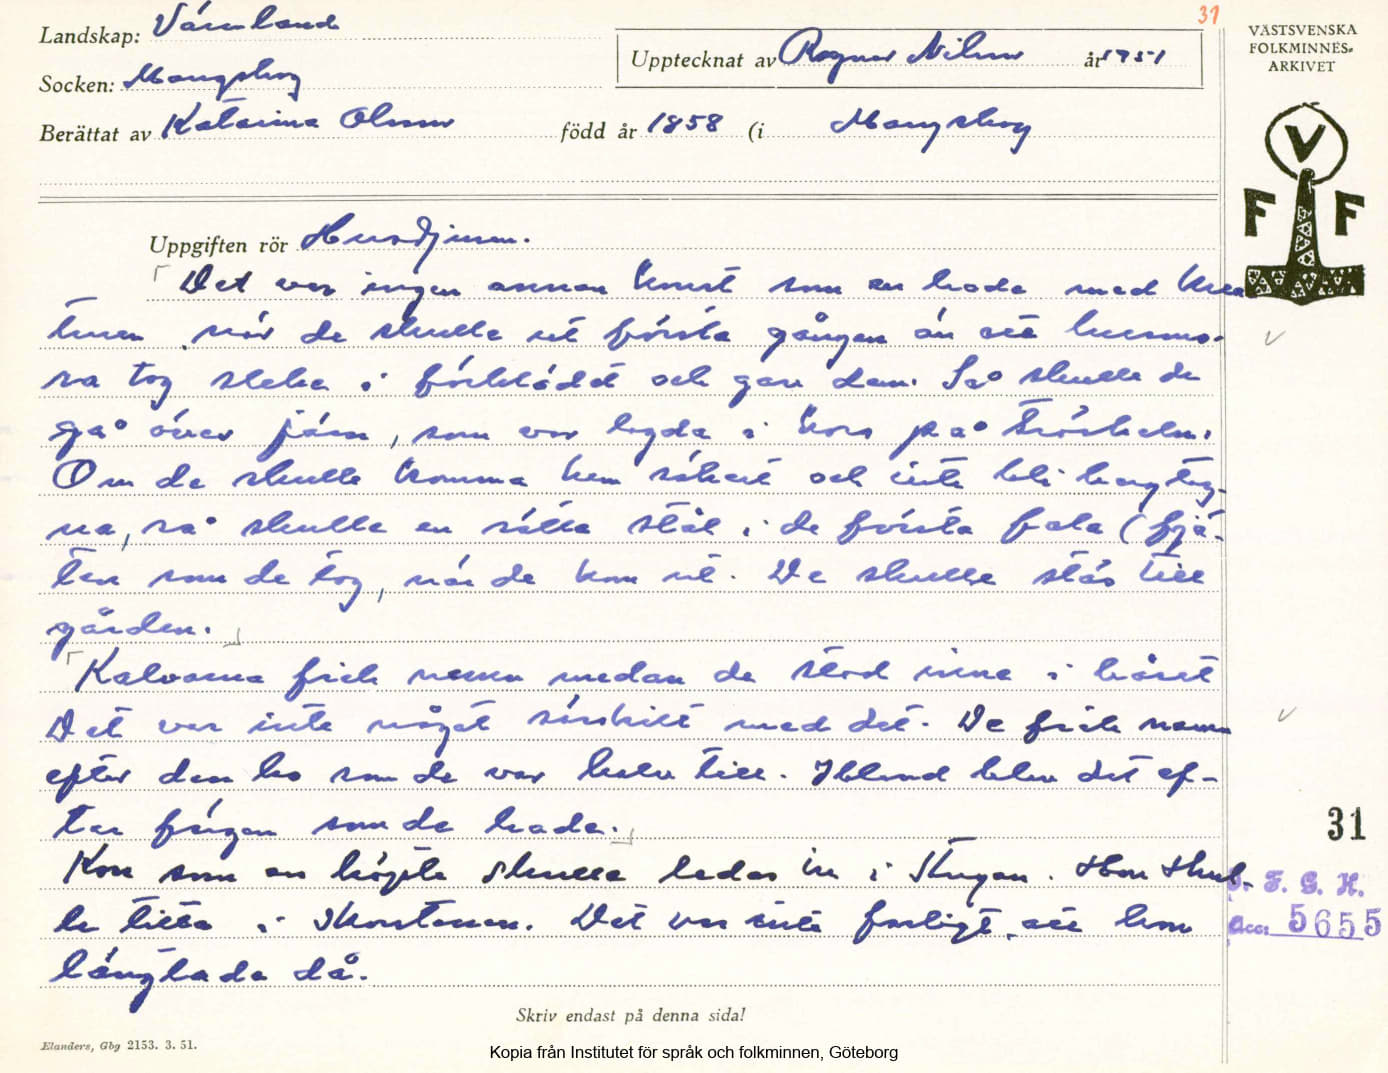 31
Landskap: Värmland
VÄSTSVENSKA
FOLKMINNES-
ARKIVET
Upptecknat av Ragnar Nilsson år 1951
Socken: Mangskog
Berättat av Katarina Olsson född år 1858 (i Mangskog
V
F F
Uppgiften rör Husdjuren.
Det var ingen annan konst som en hade med krea
turen, när de skulle ut första gången än att husmo-
ra tog sleke i förklädet och gav dem. Så skulle de
gå över järn, som var lagda i kors på tröskeln.
Om de skulle komma hem säkert och inte bli bergtag-
na, så skulle en sätta stål i de första fala (fjä-
ten som de tog, när de kom ut. De skulle stås till
gården.
Kalvarna fick namn medan de stod inne i båset
Det var inte något särskilt med det. De fick namn
efter den ko som de var kalv till. Ibland blev det ef-
ter färgen som de hade.
Kon som en köpte skulle ledas in i stugan. Hon skul-
le titta i skorstenen. Det var inte farligt, att hon
längtade då.
31
I. F. G. H.
Acc: 5655
Skriv endast på denna sida!
Elanders, Gbg 2153. 3. 51.
Kopia från Institutet för språk och folkminnen, Göteborg